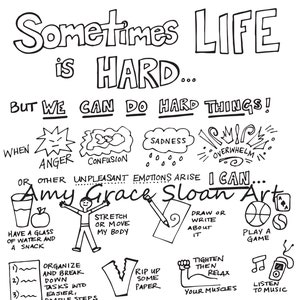 Sometimes LIFE
is HARD...
BUT WE CAN DO HARD THINGS!
WHEN ANGER CONFUSION SADNESS OVERWHELM
OR OTHER UNPLEASANT EMOTIONS ARISE I CAN...
Amy Grace Sloan Art
HAVE A GLASS
OF WATER AND
A SNACK
STRETCH
OR MOVE
MY BODY
DRAW OR
WRITE
ABOUT
IT
PLAY A
GAME
1
2
3
ORGANIZE
AND BREAK
DOWN
TASKS INTO
EASIER,
STEPS
RIP UP
SOME
PAPER
TIGHTEN
THEN
RELAX
YOUR MUSCLES
LISTEN
TO MUSIC